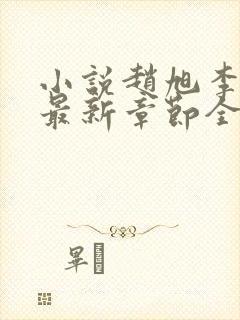 小說趙旭李
最新章節全
畢